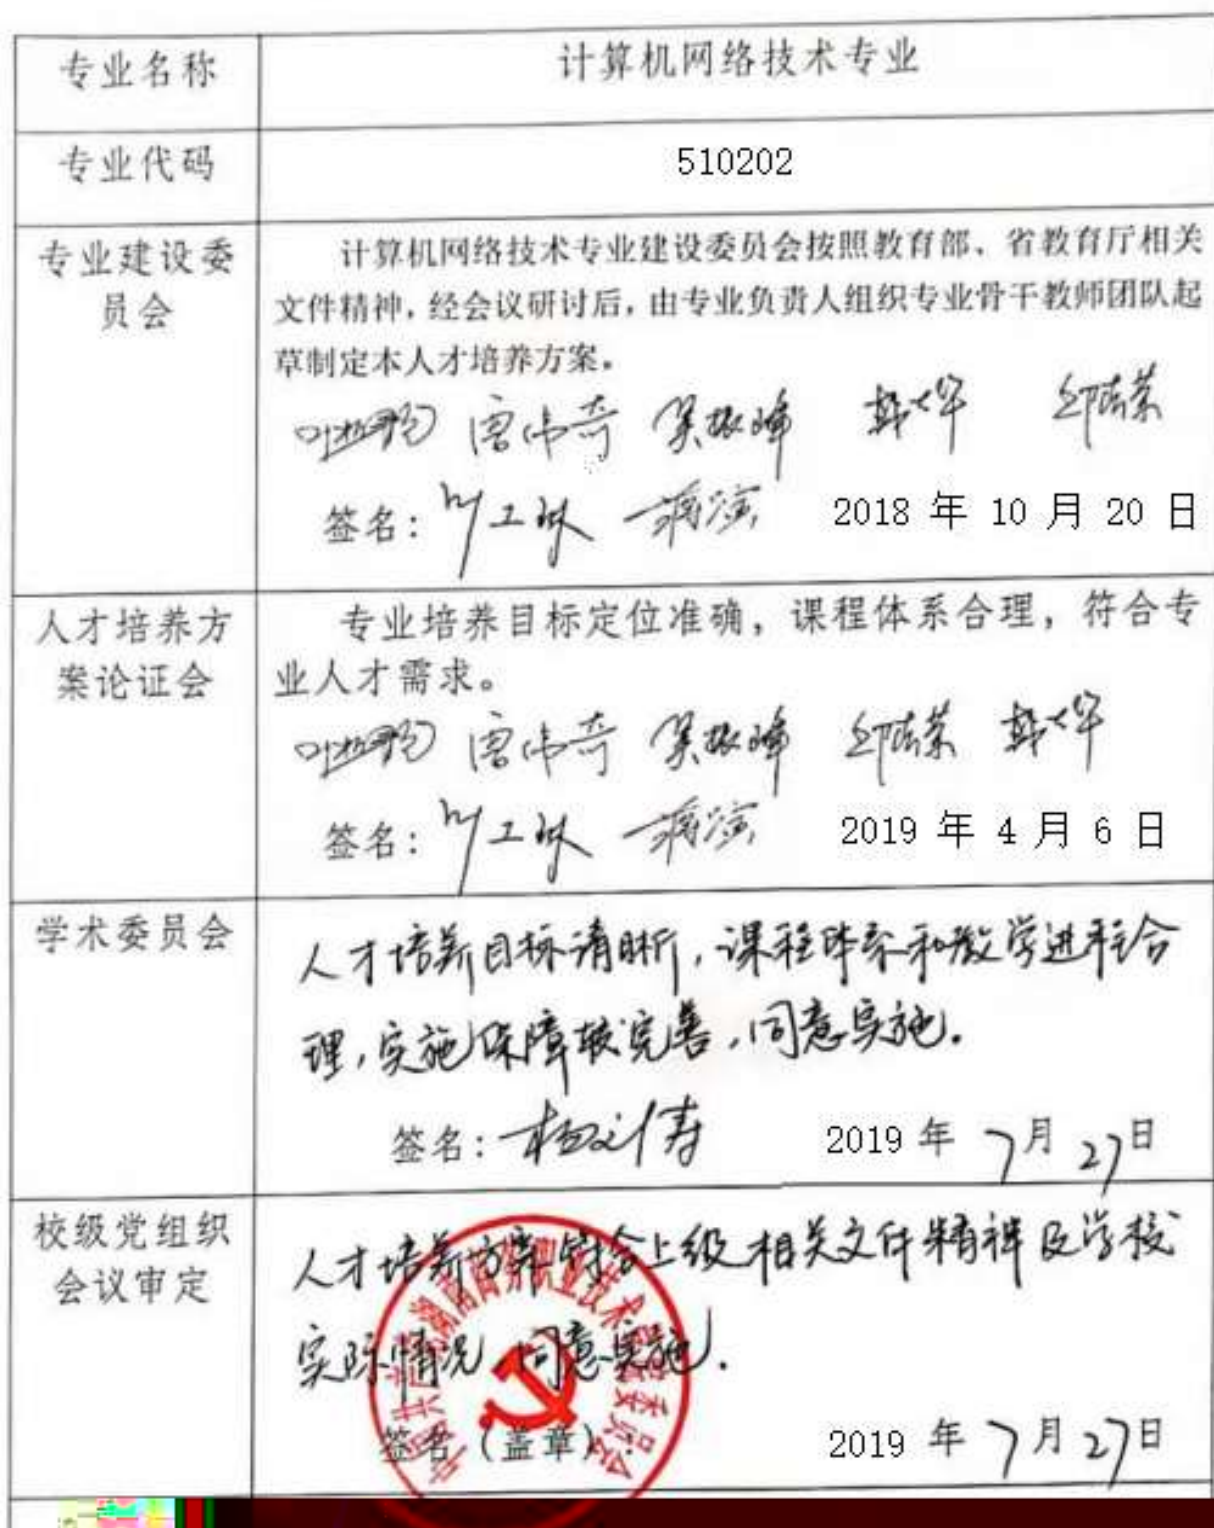 专业名称
计算机网络技术专业
专业代码
510202
专业建设委
员会
计算机网络技术专业建设委员会按照教育部、省教育厅相关
文件精神，经会议研讨后，由专业负责人组织专业骨干教师团队起
草制定本人才培养方案。
唐伟奇 吴振峰
签名：
2018 年 10 月 20 日
人才培养方
案论证会
专业培养目标定位准确，课程体系合理，符合专
业人才需求。
唐伟奇 吴振峰
签名：
2019 年 4 月 6 日
学术委员会
人才培养目标清晰，课程体系和教学进程合
理，实施保障较完善，同意实施。
签名：
2019 年 7 月 27 日
校级党组织
会议审定
人才培养方案符合上级相关文件精神及学校
实际情况，同意实施。
签名（盖章）：
2019 年 7 月 27 日